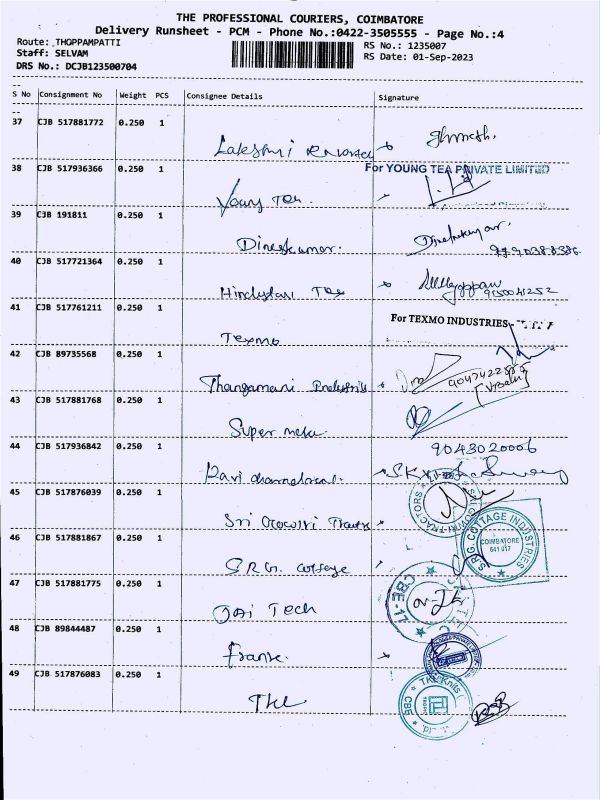 THE PROFESSIONAL COURIERS, COIMBATORE
Delivery Runsheet - PCM - Phone No.:0422-3505555 - Page No.:4
Route: THOPPAMPATTI
RS No.: 1235007
Staff: SELVAM
RS Date: 01-Sep-2023
DRS No.: DCJB123500704
S No Consignment No Weight PCS Consignee Details Signature
37 CJB 517881772 0.250 1
Lakshmi
38 CJB 517936366 0.250 1
For YOUNG TEA PRIVATE LIMITED
Young Tea
39 CJB 191811 0.250 1
Dineshkumar.
40 CJB 517721364 0.250 1
Hindustan Tea
9150041252
41 CJB 517761211 0.250 1
For TEXMO INDUSTRIES
Texmo
42 CJB 89735568 0.250 1
Thangamani Industries
43 CJB 517881768 0.250 1
Super
44 CJB 517936842 0.250 1
9043020006
Ravi
45 CJB 517876039 0.250 1
SRI GOWRI TRACTORS
Sri Gowri Tractors
46 CJB 517881867 0.250 1
S.R.G. COTTAGE INDUSTRIES
COIMBATORE
641 017
S.R.G. Cottage
47 CJB 517881775 0.250 1
Jai Tech
48 CJB 89844487 0.250 1
49 CJB 517876083 0.250 1
TKL
CBE